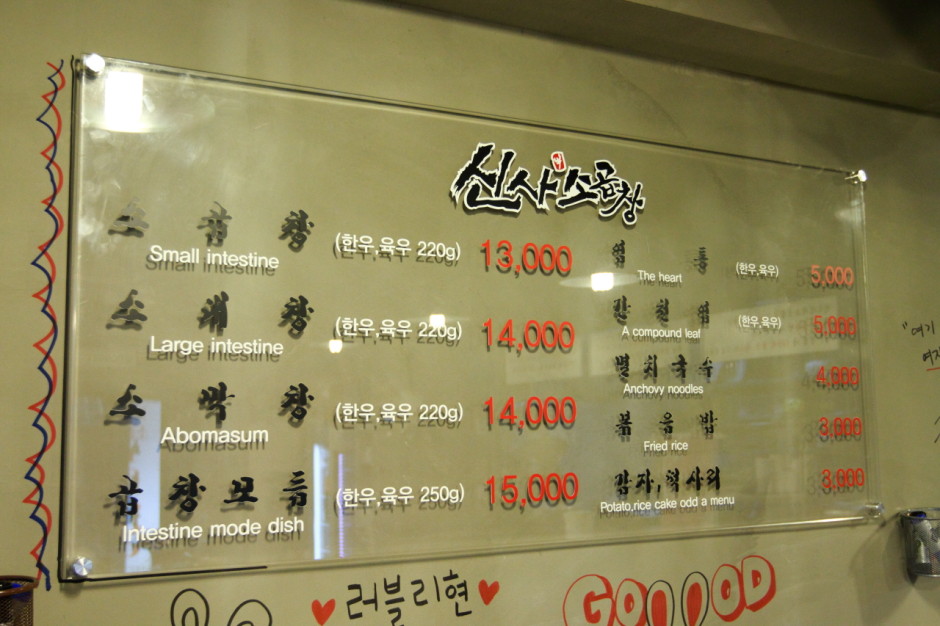 신사소곱창
소 곱 창 (한우,육우 220g) 13,000
Small intestine
소 대 창 (한우,육우 220g) 14,000
Large intestine
소 막 창 (한우,육우 220g) 14,000
Abomasum
곱 창 모 듬 (한우,육우 250g) 15,000
Intestine mode dish
염 통 (한우,육우) 5,000
The heart
간 천 엽 (한우,육우) 5,000
A compound leaf
멸 치 국 수 4,000
Anchovy noodles
볶 음 밥 3,000
Fried rice
감자,떡사리 3,000
Potato,rice cake odd a menu
"여기
여자
러블리현
GOOOOD